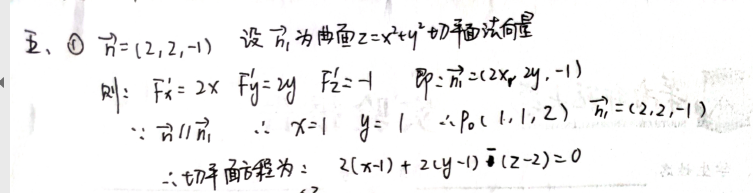 五、① n⃗=(2,2,-1) 设 n⃗₁ 为曲面 z=x²+y² 切平面法向量
则: F'x=2x F'y=2y F'z=-1 即: n⃗₁=(2x, 2y, -1)
∵ n⃗∥n⃗₁ ∴ x=1 y=1 ∴P₀(1,1,2) n⃗₁=(2,2,-1)
∴切平面方程为: 2(x-1)+2(y-1)-(z-2)=0